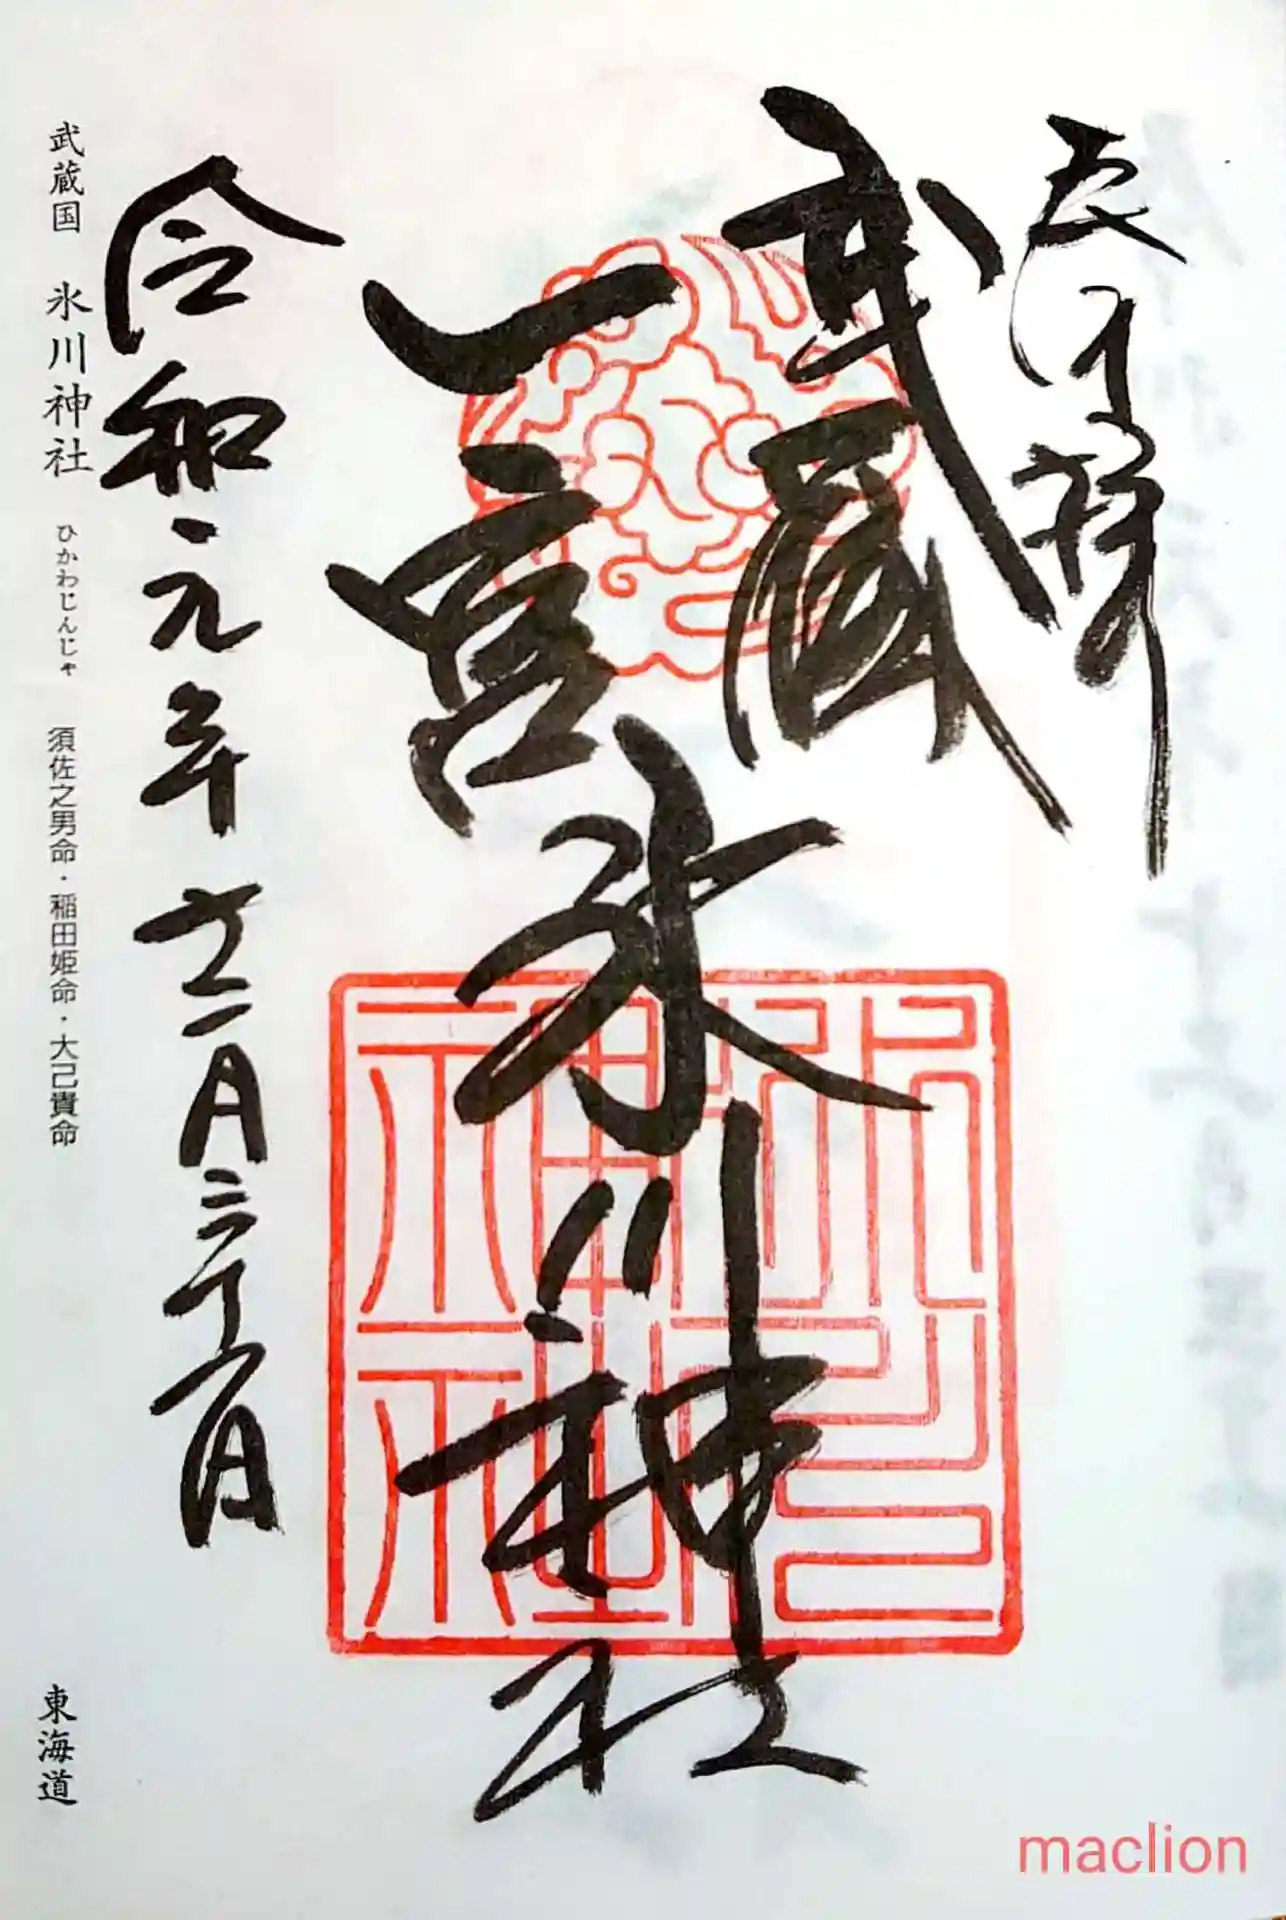 武蔵
一宮
氷川神社
令和元年十二月
氷川神社
武蔵国 氷川神社 ひかわじんじゃ 須佐之男命・稲田姫命・大己貴命
東海道
maclion